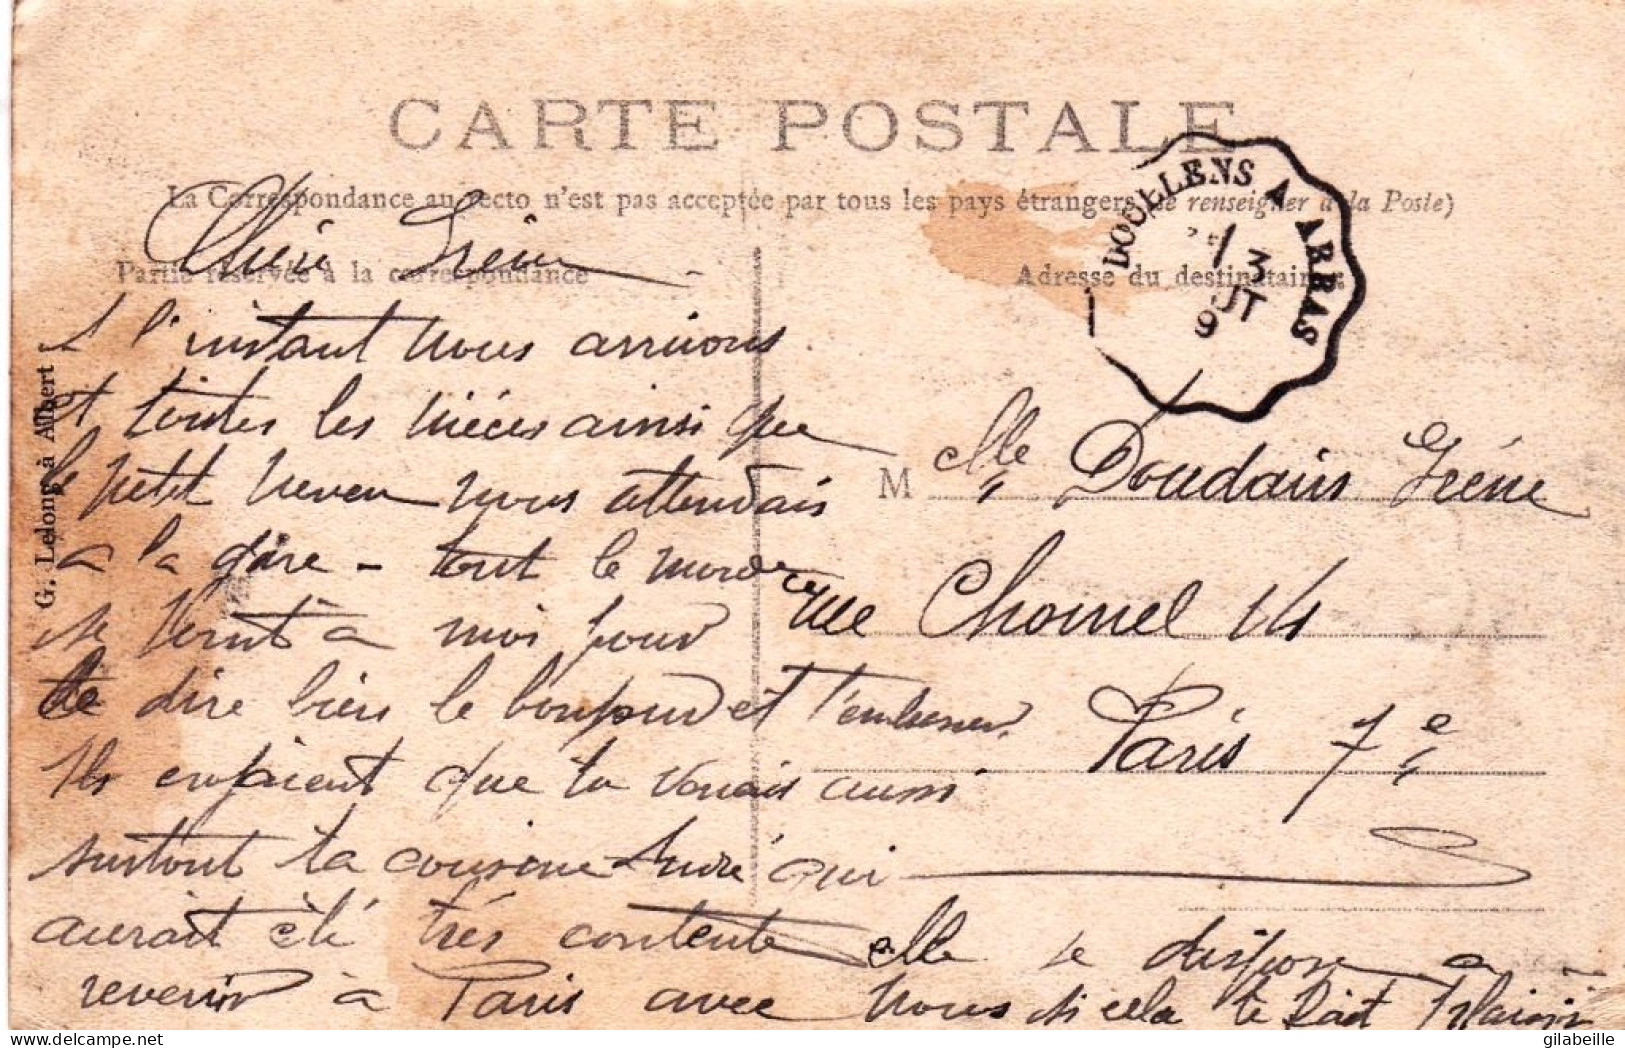 CARTE POSTALE
La Correspondance au recto n'est pas acceptée par tous les pays étrangers (Se renseigner à la Poste)
Partie réservée à la correspondance
Adresse du destinataire
DOULLENS A ARRAS
3
UT
9
G. Lelong à Albert
Chère Irène
A l'instant nous arrivons
et toutes les nièces ainsi que
le petit neveu nous attendais
a la gare - tout le monde
se vient à moi pour
te dire bien le bonjour et t'embrasser
Ils croyaient que tu venais aussi
surtout ta cousine André qui
aurait été très contente elle se dispose a
revenir à Paris avec nous si cela te fait plaisir
M elle Doudans Irène
rue Chomel 14
Paris 7e
gilabeille